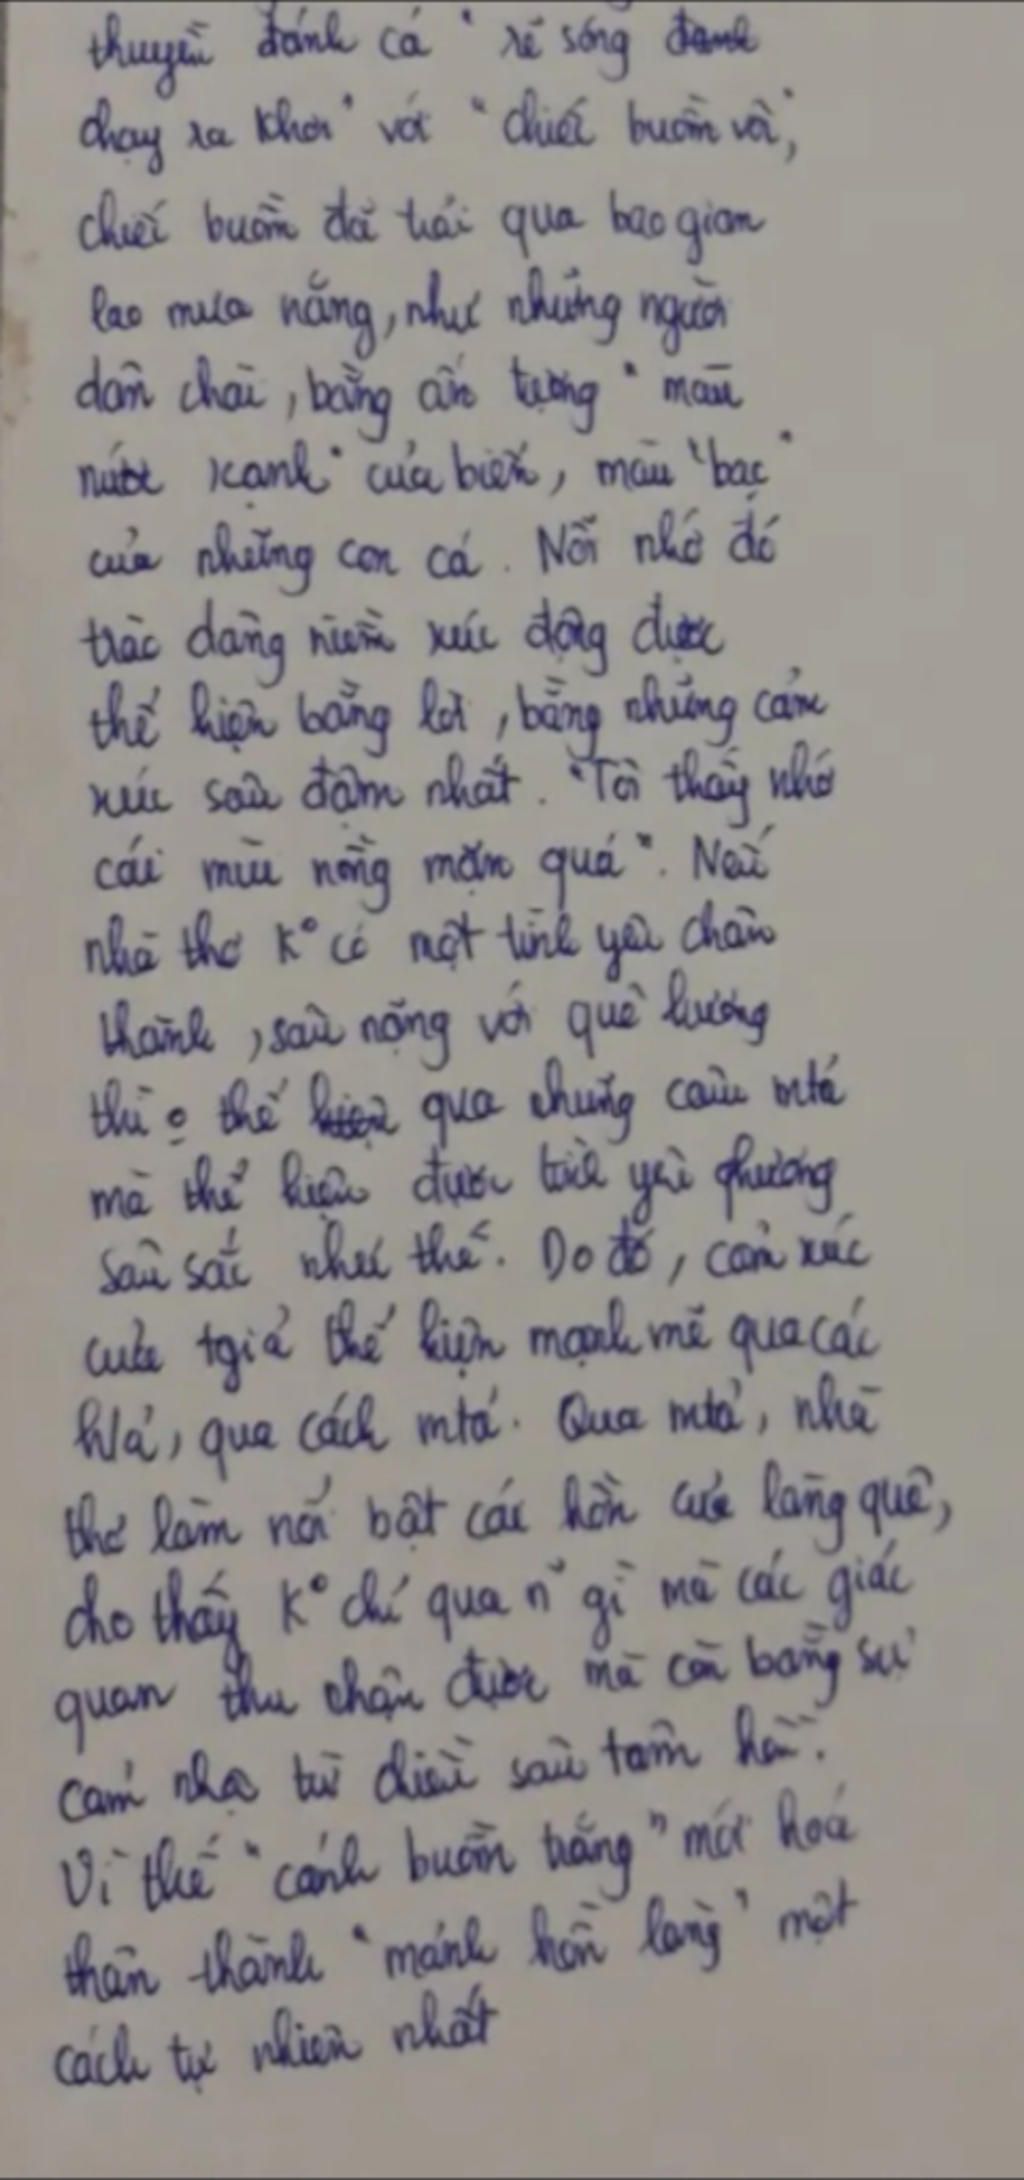 thuyền đánh cá " rẽ sóng
chạy ra khơi " với " chiếc buồm vôi ",
chiếc buồm đã trải qua bao gian
lao mưa nắng, như những người
dân chài, bằng ấn tượng " màu
nước xanh " của biển, màu " bạc "
của những con cá. Nỗi nhớ đó
trào dâng niềm xúc động được
thể hiện bằng lời, bằng những cảm
xúc sâu đậm nhất. "Tôi thấy nhớ
cái mùi nồng mặn quá". Nếu
nhà thơ K° có một tình yêu chân
thành, sâu nặng với quê hương
thì thể qua những câu mtả
mà thể hiện được tình yêu phương
sâu sắc như thế. Do đó, cảm xúc
của tgiả thể hiện mạnh mẽ qua các
h/ả, qua cách mtả. Qua mtả, nhà
thơ làm nổi bật cái hồn của làng quê,
cho thấy K° chỉ qua n~ gì mà các giác
quan thu nhận được mà còn bằng sự
cảm từ chiều sâu tâm hồn.
Vì thế " cánh buồm trắng " mới hoá
thân thành " mảnh hồn làng " một
cách tự nhiên nhất